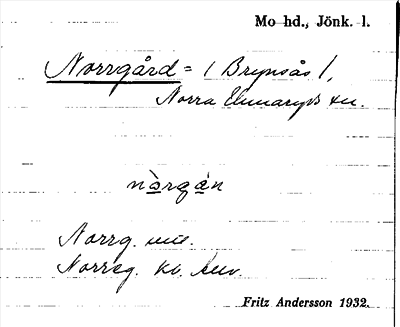 Mo hd., Jönk. l.
Norrgård = / Brynsås /,
Norra Unnaryds sn.
nòrgán
Norrg.
Norreg. kv.
Fritz Andersson 1932.